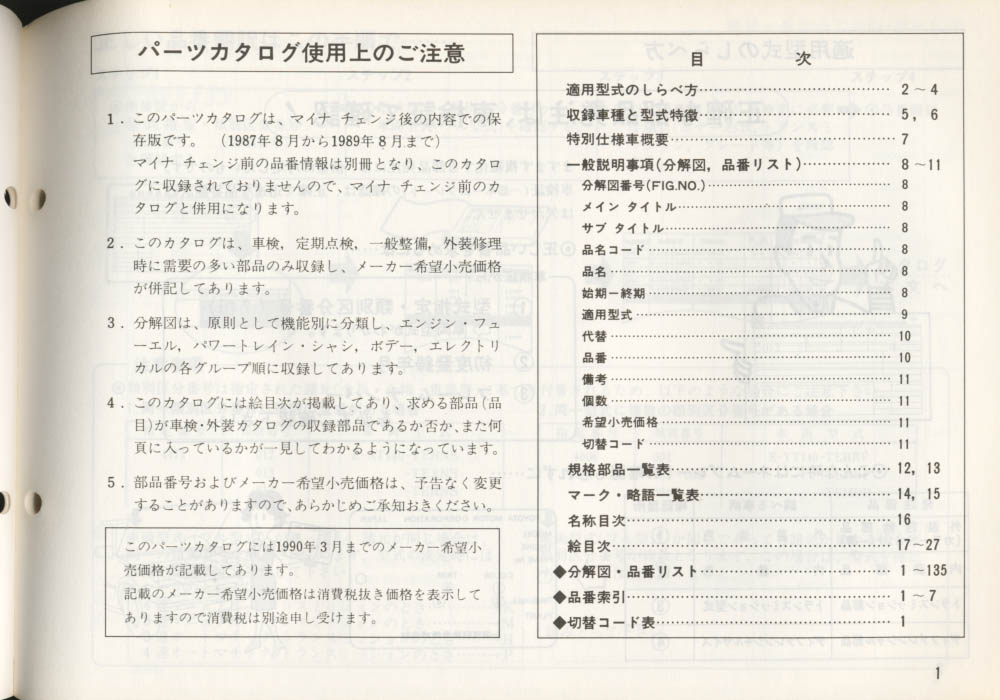 パーツカタログ使用上のご注意
1．このパーツカタログは、マイナ チェンジ後の内容での保
存版です。（1987年8月から1989年8月まで）
マイナ チェンジ前の品番情報は別冊となり、このカタロ
グに収録されておりませんので、マイナ チェンジ前のカ
タログと併用になります。
2．このカタログは、車検，定期点検，一般整備，外装修理
時に需要の多い部品のみ収録し、メーカー希望小売価格
が併記してあります。
3．分解図は、原則として機能別に分類し、エンジン・フュ
ーエル，パワートレイン・シャシ，ボデー，エレクトリ
カルの各グループ順に収録してあります。
4．このカタログには絵目次が掲載してあり、求める部品（品
目）が車検・外装カタログの収録部品であるか否か、また何
頁に入っているかが一見してわかるようになっています。
5．部品番号およびメーカー希望小売価格は、予告なく変更
することがありますので、あらかじめご承知おきください。
このパーツカタログには1990年3月までのメーカー希望小
売価格が記載してあります。
記載のメーカー希望小売価格は消費税抜き価格を表示して
ありますので消費税は別途申し受けます。
目 次
適用型式のしらべ方 2～4
収録車種と型式特徴 5，6
特別仕様車概要 7
一般説明事項(分解図，品番リスト) 8～11
分解図番号(FIG.NO.) 8
メイン タイトル 8
サブ タイトル 8
品名コード 8
品名 8
始期ー終期 8
適用型式 9
代替 10
品番 10
備考 11
個数 11
希望小売価格 11
切替コード 11
規格部品一覧表 12，13
マーク・略語一覧表 14，15
名称目次 16
絵目次 17～27
◆分解図・品番リスト 1～135
◆品番索引 1～7
◆切替コード表 1
1